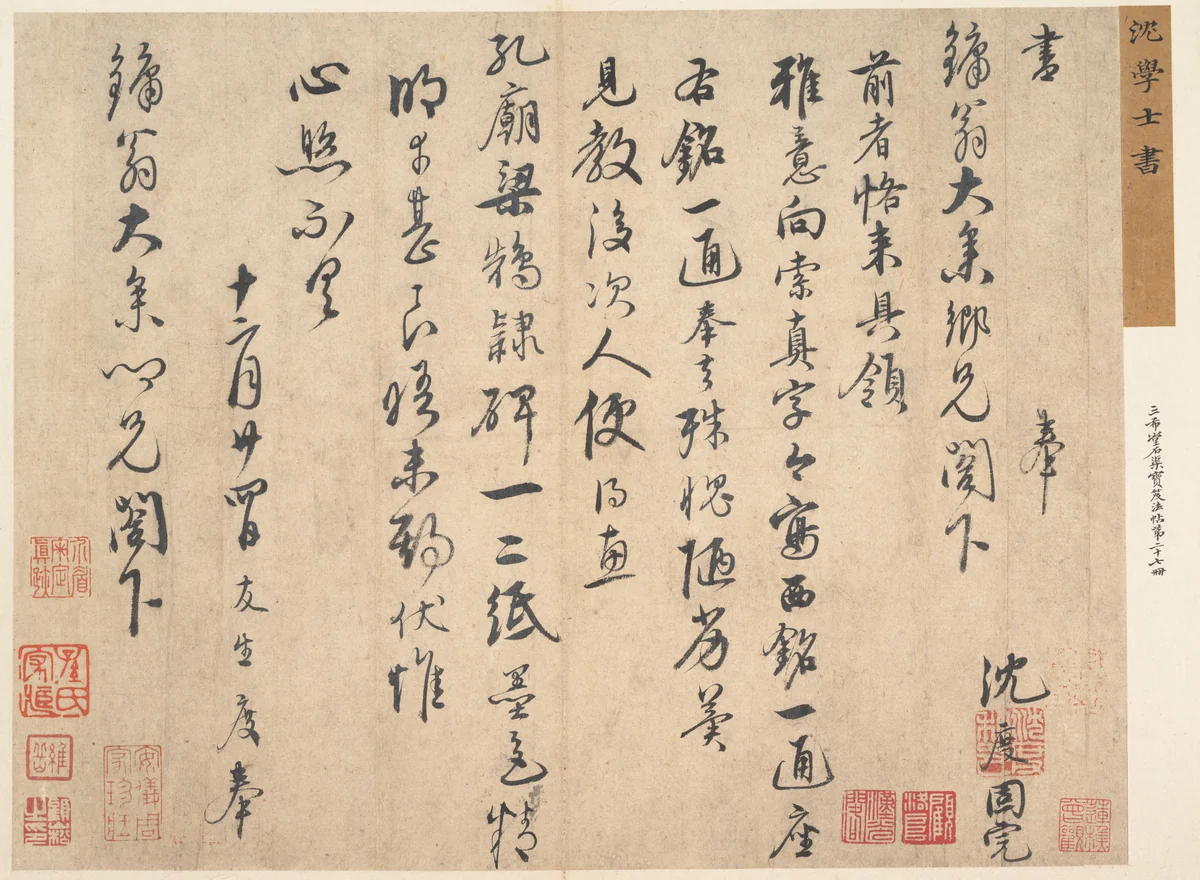 沈學士書
三希堂石渠寶笈法帖第二十七冊
書 奉
鏞翁大參鄉兄閣下
沈度固完
前者恪来具領
雅意向索真字今寫西銘一通座
右銘一通奉去殊愧陋劣冀
見教後次人便得惠
孔廟梁鵠隸碑一二紙墨色精
明者甚良晤未期伏惟
心照不具
十二月廿四日友生度奉
鏞翁大參鄉兄閣下